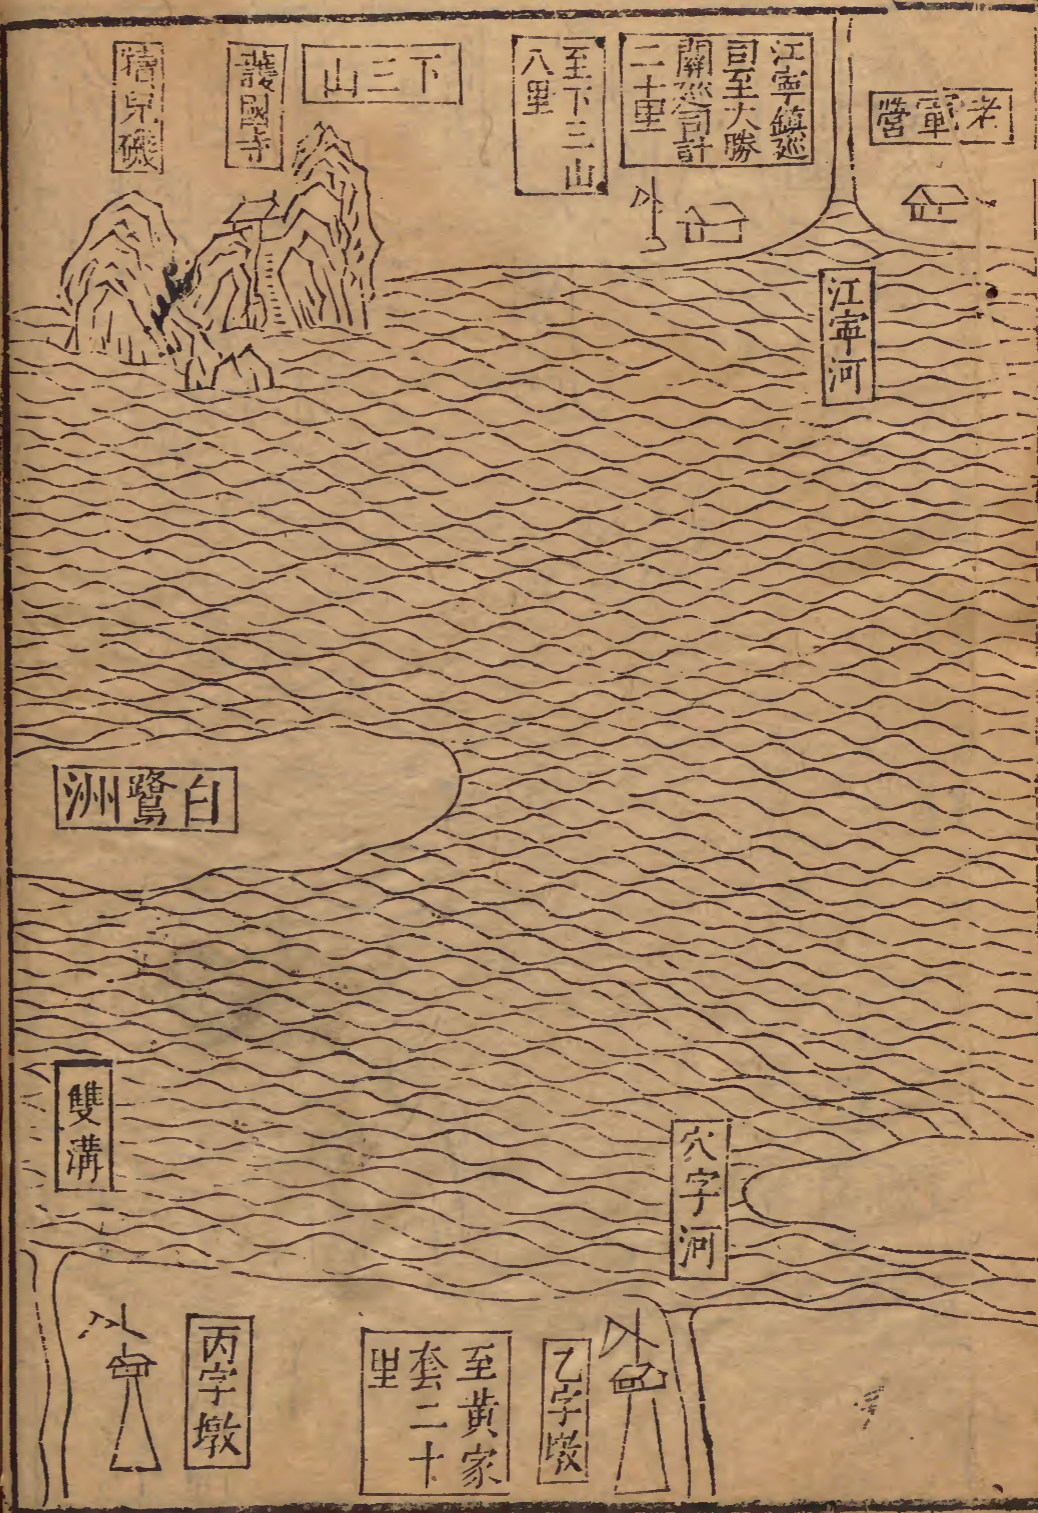 老軍營
江寧鎮廵
司至大勝
關廵司計
二十里
至下三山
八里
下三山
護國寺
猫兒磯
江寧河
白鷺洲
雙溝
穴字河
乙字墩
至黄家
套二十
里
丙字墩